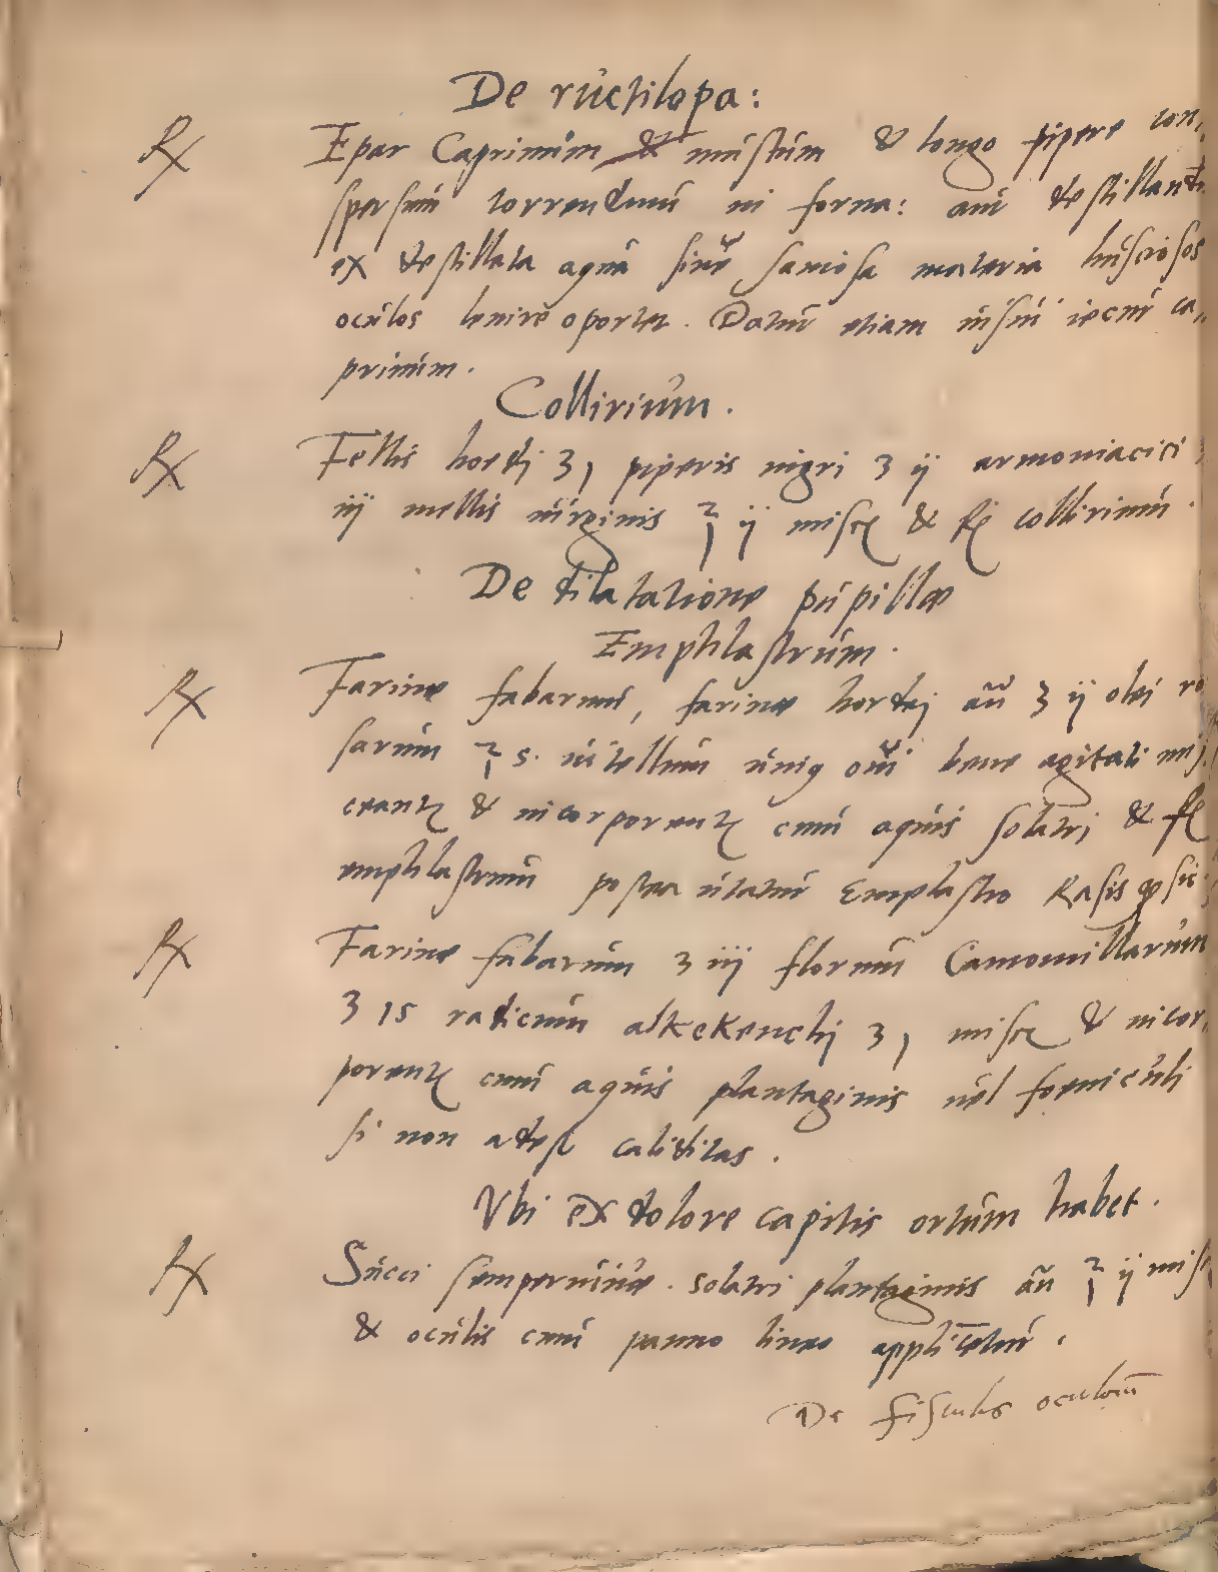 De ructilopa:
℞ Epar Caprinum & mustum & longo pipere con„
spersum torrendum in forna: aut destillanti
ex destillata aqua siue saniosa materia lusciosos
oculos lenire oportet. Datur etiam in sui iecur ca„
prinum.
Collirium.
℞ Fellis hoedj ʒ j piperis nigri ʒ ij armoniacici ʒ
iij mellis uirginis ℥ ij misce & f collirium.
De dilatatione pupillæ
Emphlastrum.
℞ Farine fabarum, farinæ hordej añ ʒ ij olei ro
sarum ℥ s. uitellum uniq oui bene agitati mis
ceant & incorporent cum aquis solatri & f
emphlastrum postea utatur Emplastro Rasis sic:
℞ Farine fabarum ʒ iij florum Camomillarum
ʒ i s radicum alkekenchj ʒ j misce & incor„
porent cum aquis plantaginis uel foeniculi
si non adest caliditas.
Vbi ex dolore capitis ortum habet.
℞ Succi semperuiuæ. solatri plantaginis añ ℥ ij misce
& oculis cum panno lineo applicetur.
De fistulis oculorū